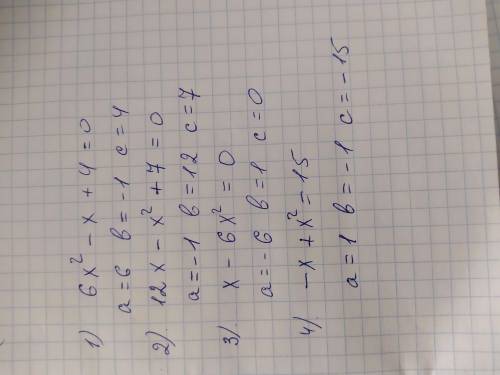 1) 6x² - x + 4 = 0
a = 6 в = -1 c = 4
2) 12x - x² + 7 = 0
a = -1 в = 12 c = 7
3) x - 6x² = 0
a = -6 в = 1 c = 0
4) -x + x² = 15
a = 1 в = -1 c = -15